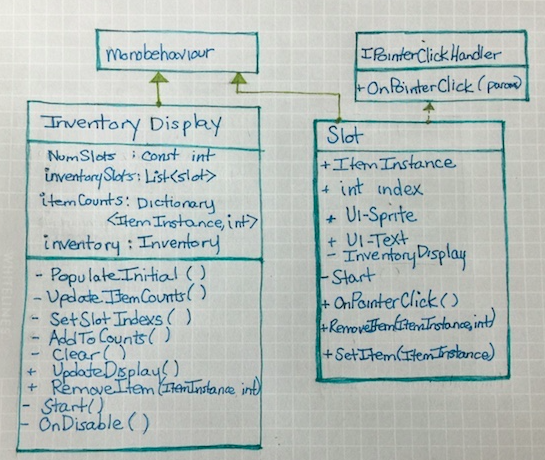 Monobehaviour
IPointerClickHandler
+ OnPointerClick(param)
Inventory Display
NumSlots : const int
inventorySlots: List<slot>
itemCounts: Dictionary
<ItemInstance, int>
inventory : Inventory
- PopulateInitial()
- UpdateItemCounts()
- SetSlotIndexs()
- AddToCounts()
- Clear()
+ UpdateDisplay()
+ RemoveItem(ItemInstance int)
- Start()
- OnDisable()
Slot
+ ItemInstance
+ int index
+ UI-Sprite
+ UI-Text
- InventoryDisplay
- Start
+ OnPointerClick()
+ RemoveItem(ItemInstance, int)
+ SetItem(ItemInstance)